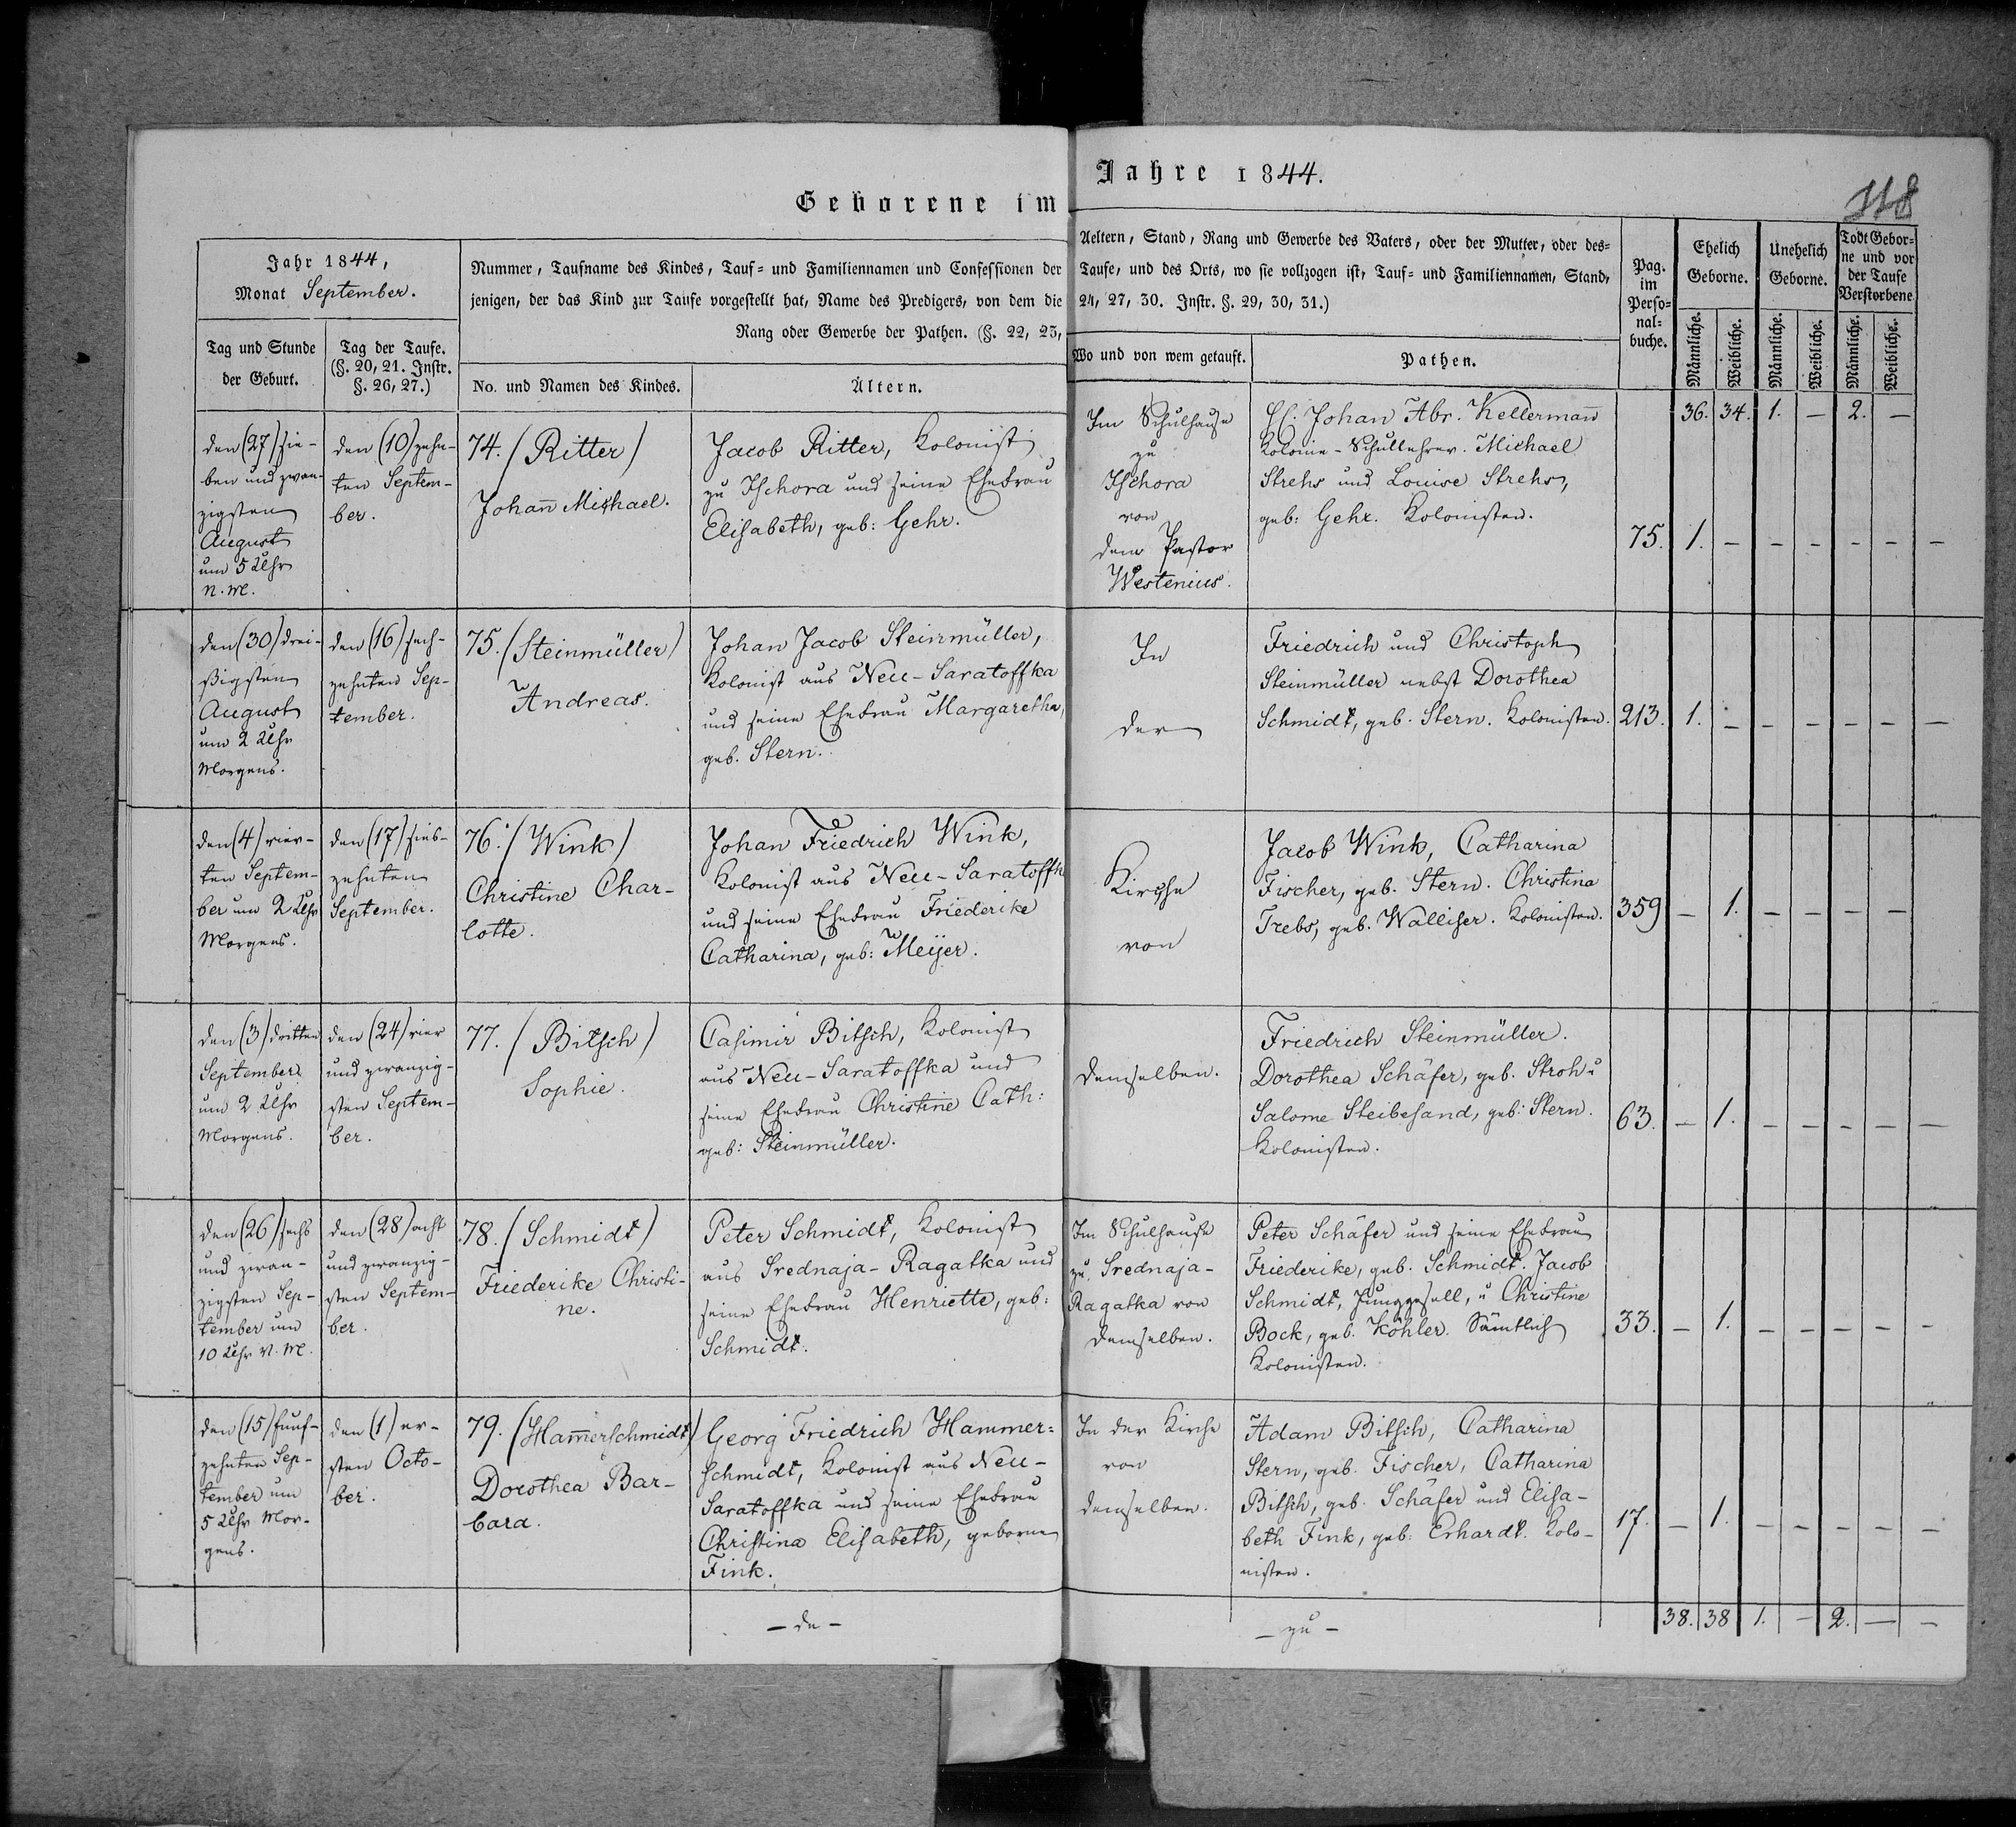 Geborene im Jahre 1844.
118
Jahr 1844,
Monat September.
Tag und Stunde
der Geburt.
Tag der Taufe.
(§. 20, 21. Instr.
§. 26, 27.)
Nummer, Taufname des Kindes, Tauf- und Familiennamen und Confessionen der Aeltern, Stand, Rang und Gewerbe des Vaters, oder der Mutter, oder des=
jenigen, der das Kind zur Taufe vorgestellt hat, Name des Predigers, von dem die Taufe, und des Orts, wo sie vollzogen ist, Tauf- und Familiennamen, Stand,
Rang oder Gewerbe der Pathen. (§. 22, 23, 24, 27, 30. Instr. §. 29, 30, 31.)
No. und Namen des Kindes.
Ältern.
Wo und von wem getauft.
Pathen.
Pag.
im
Perso=
nal=
buche.
Ehelich
Geborne.
Unehelich
Geborne.
Todt Gebor=
ne und vor
der Taufe
Verstorbene
Männliche.
Weibliche.
Männliche.
Weibliche.
Männliche.
Weibliche.
36. 34. 1. — 2. —
den (27) sie-
ben und zwan-
zigsten
August
um 5 Uhr
N. M.
den (10) zehn-
ten Septem-
ber.
74. (Ritter)
Johañ Michael.
Jacob Ritter, Kolonist
zu Ischora und seine Ehefrau
Elisabeth, geb: Gehr.
Im Schulhause
zu
Ischora
von
dem Pastor
Westenius.
Johan Abr. Kellermañ
Kolonie-Schullehrer. Michael
Strehs und Louise Strehs,
geb: Gehr. Kolonisten.
75. 1. – – – – – –
den (30) drei-
ßigsten
August
um 2 Uhr
Morgens.
den (16) sech-
zehnten Sep-
tember.
75. (Steinmüller)
Andreas.
Johan Jacob Steinmüller,
Kolonist aus Neu-Saratoffka
und seine Ehefrau Margaretha,
geb. Stern.
In
der
Friedrich und Christoph
Steinmüller nebst Dorothea
Schmidt, geb. Stern. Kolonisten.
213. 1. – – – – – –
den (4) vier-
ten Septem-
ber um 2 Uhr
Morgens.
den (17) sieb-
zehnten
September.
76. (Wink)
Christine Char-
lotte.
Johan Friedrich Wink,
Kolonist aus Neu-Saratoffk
und seine Ehefrau Friederike
Catharina, geb: Meijer.
Kirche
von
Jacob Wink, Catharina
Fischer, geb. Stern. Christina
Trebs, geb. Walliser. Kolonisten.
359 – 1. – – – –
den (3) dritten
September
um 2 Uhr
Morgens.
den (24) vier
und zwanzig-
sten Septem-
ber.
77. (Bitsch)
Sophie.
Casimir Bitsch, Kolonist
aus Neu-Saratoffka und
seine Ehefrau Christine Cath:
geb: Steinmüller.
demselben.
Friedrich Steinmüller.
Dorothea Schäfer, geb. Stroh u
Salome Steibesand, geb: Stern.
Kolonisten.
63. – 1. – – – – –
den (26) sechs
und zwan-
zigsten Sep-
tember um
10 Uhr V. M.
den (28) acht
und zwanzig-
sten Septem-
ber.
78. (Schmidt)
Friederike Christi-
ne.
Peter Schmidt, Kolonist
aus Srednaja-Ragatka und
seine Ehefrau Henriette, geb:
Schmidt.
Im Schulhause
zu Srednaja-
Ragatka von
demselben.
Peter Schäfer und seine Ehefrau
Friederike, geb. Schmidt. Jacob
Schmidt, Junggesell, u Christine
Bock, geb. Köhler. Sämtlich
Kolonisten.
33. – 1. – – – – –
den (15) fünf-
zehnten Sep-
tember um
5 Uhr Mor-
gens.
den (1) er-
sten Octo-
ber.
79. (Ham̃erschmidt)
Dorothea Bar-
bara.
Georg Friedrich Hammer=
schmidt, Kolonist aus Neu-
Saratoffka und seine Ehefrau
Christina Elisabeth, geborne
Fink.
In der Kirche
von
demselben.
Adam Bitsch, Catharina
Stern, geb. Fischer, Catharina
Bitsch, geb. Schäfer und Elisa-
beth Fink, geb: Erhardt. Kolo-
nisten.
17. – 1. – – – – –
– de –
– zu –
38. 38 1. – 2. – –